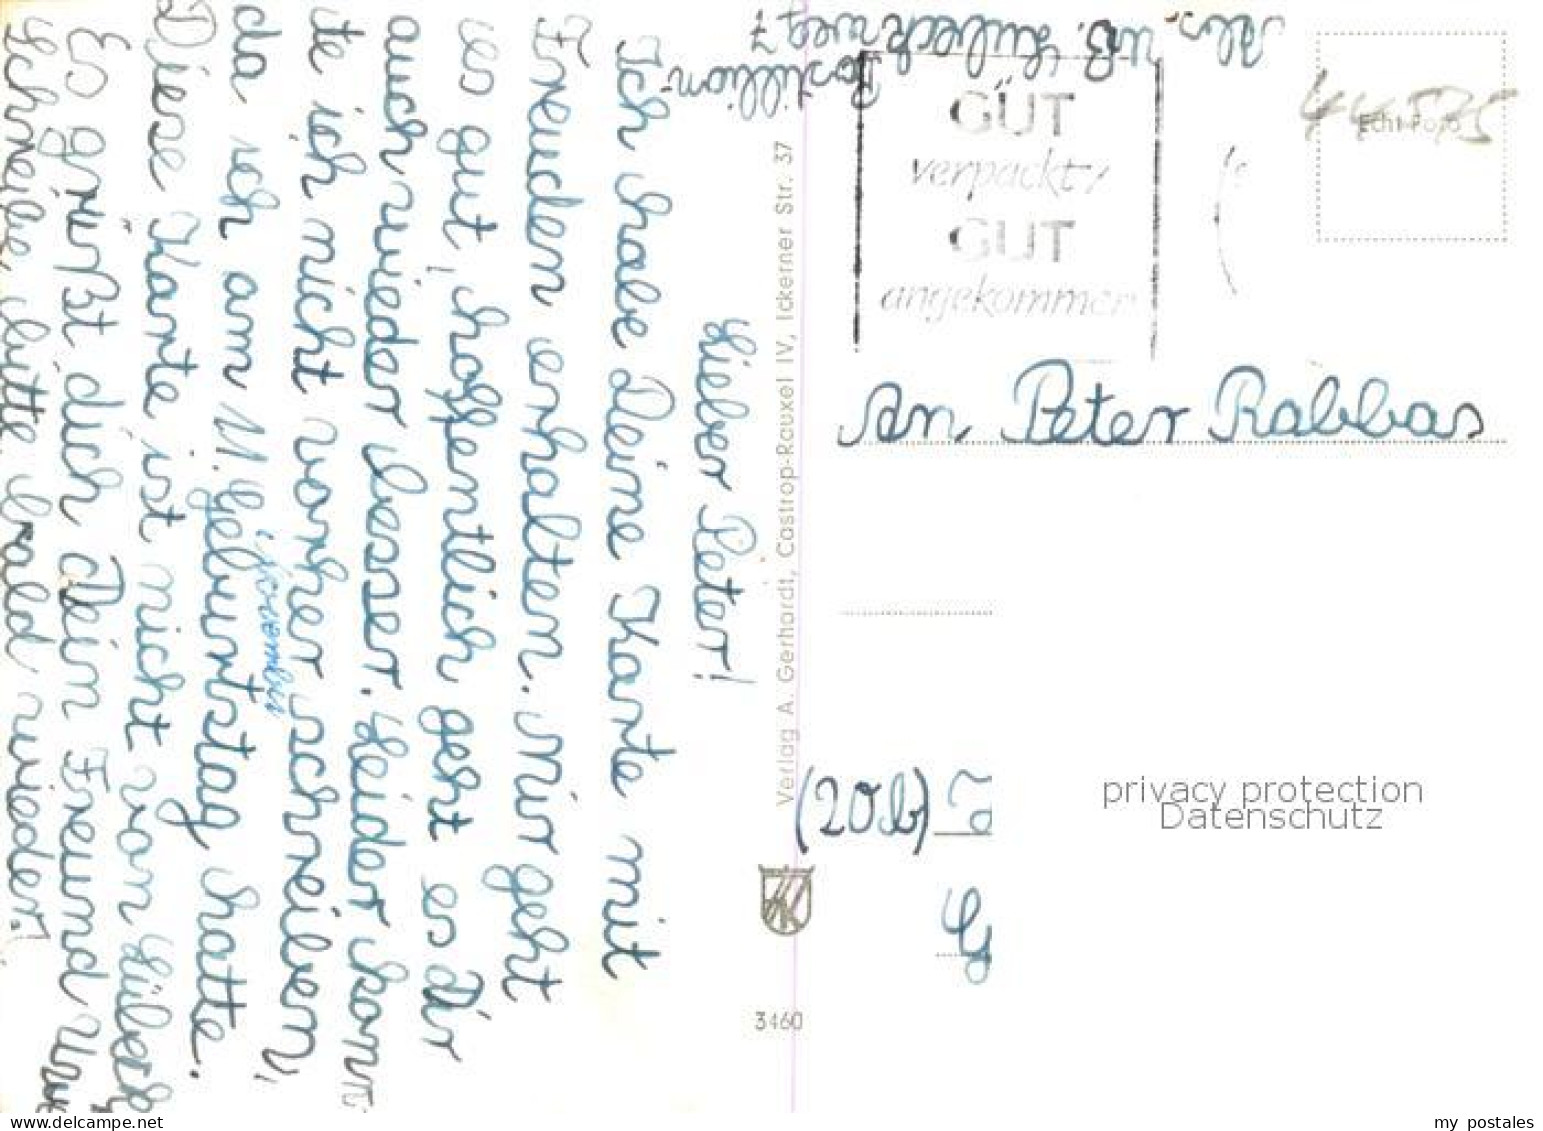 Lieber Peter!
Ich habe Deine Karte mit
Freuden erhalten. Mir geht
es gut, hoffentlich geht es Dir
auch wieder besser. Leider konn
te ich nicht vorher schreiben,
da ich am 11. November Geburtstag hatte.
Diese Karte ist nicht von Lübeck
Es grüßt dich Dein Freund
Schreibe bitte bald wieder!
Abs. Lübeck
Postillion-
weg 7
Verlag A. Gerhardt, Castrop-Rauxel IV, Ickerner Str. 37
3460
GUT
verpackt,
GUT
angekommen
Echt Foto
44575
An Peter Rabbas
(20b)
privacy protection
Datenschutz
delcampe.net
my_postales